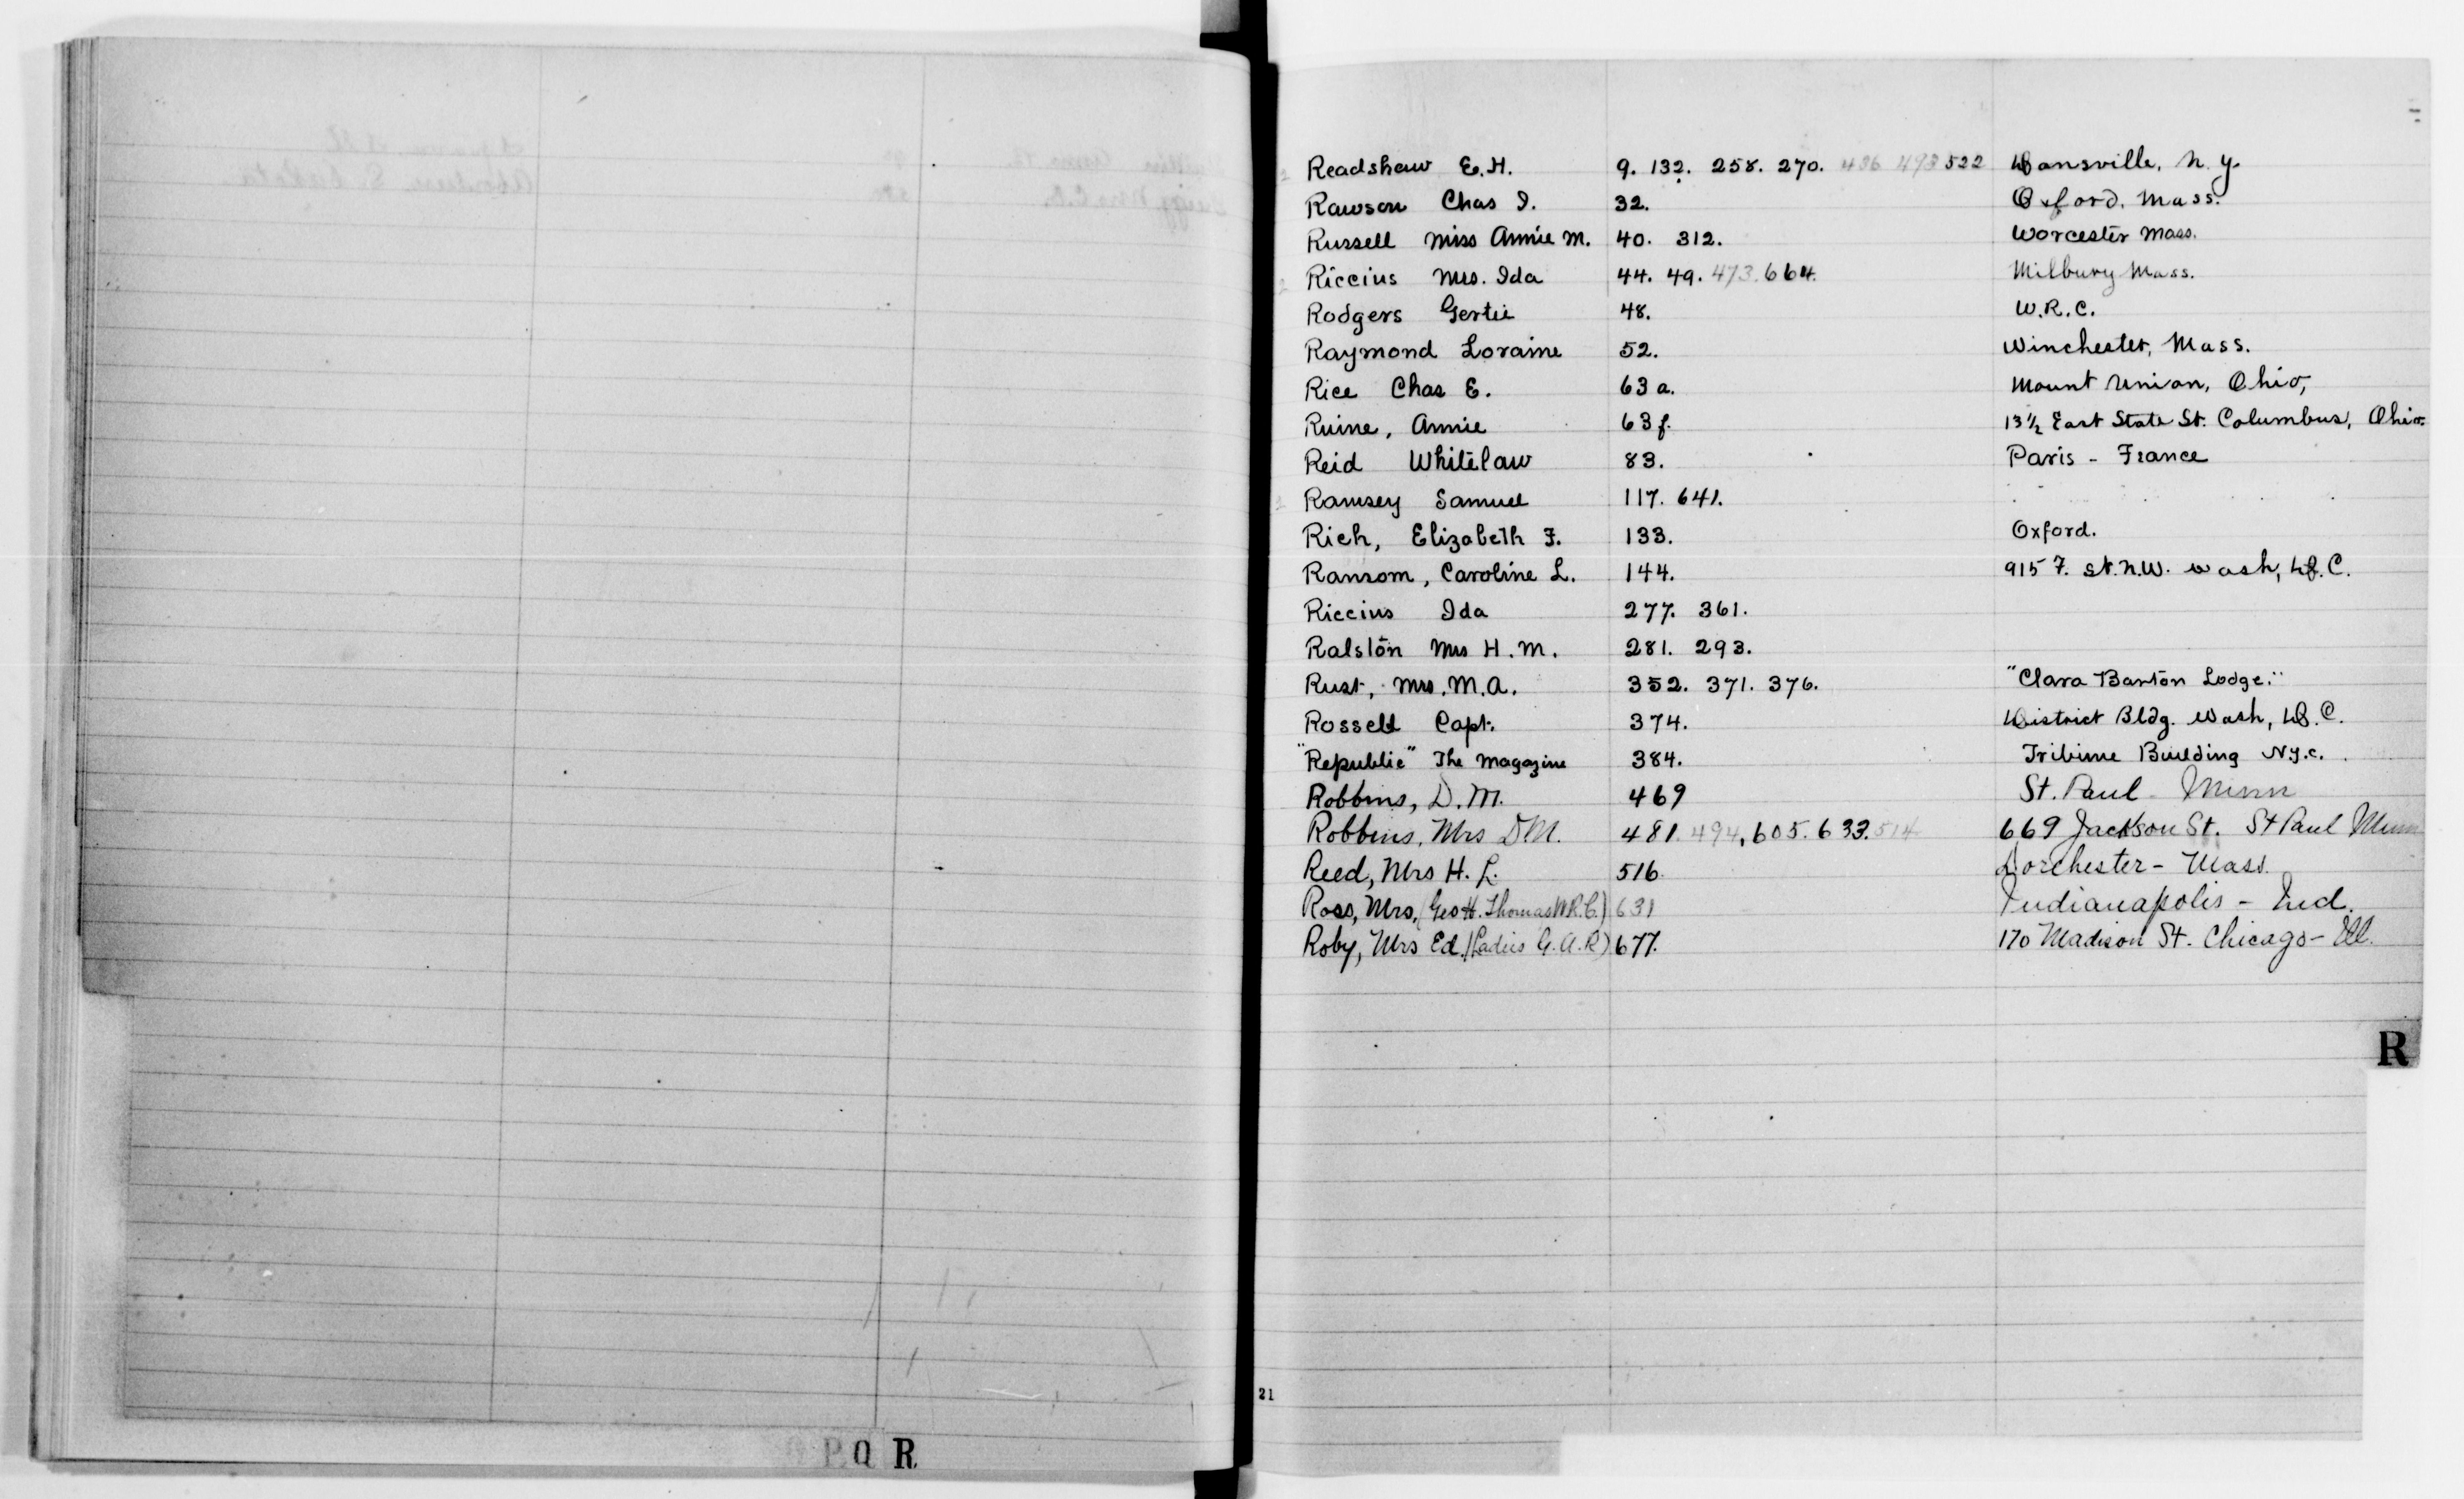 Readshaw E.H. 9. 132. 258. 270. 436 493 522 Dansville, N.Y.
Rawson Chas I. 32. Oxford, Mass.
Russell Miss Annie M. 40. 312. Worcester Mass.
Riccius Mrs. Ida 44. 49. 473. 664. Milbury Mass.
Rodgers Gertie 48. W.R.C.
Raymond Loraine 52. Winchester, Mass.
Rice Chas E. 63 a. Mount Union, Ohio,
Ruine, Annie 63 f. 13½ East State St. Columbus, Ohio.
Reid Whitelaw 83. Paris - France
Ramsey Samuel 117. 641.
Rich, Elizabeth F. 133. Oxford.
Ransom, Caroline L. 144. 915 F. St. N.W. Wash, D.C.
Riccius Ida 277. 361.
Ralston Mrs H.M. 281. 293.
Rust, Mrs. M.A. 352. 371. 376. "Clara Barton Lodge."
Rossell Capt. 374. District Bldg. Wash, D.C.
"Republic" The Magazine 384. Tribune Building N.Y.C.
Robbins, D.M. 469 St. Paul Minn
Robbins, Mrs D.M. 481. 494, 605. 633. 514 669 Jackson St. St Paul Minn
Reed, Mrs H. L. 516. Dorchester - Mass.
Ross, Mrs, (Geo H. Thomas W.R.C.) 631 Indianapolis - Ind.
Roby, Mrs Ed. (Ladies G.A.R) 677. 170 Madison St. Chicago - Ill.
R
21
P Q R